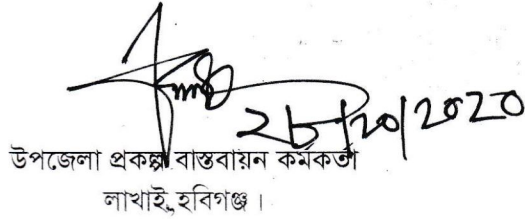 ২৮/১০/২০২০
উপজেলা প্রকল্প বাস্তবায়ন কর্মকর্তা
লাখাই, হবিগঞ্জ।